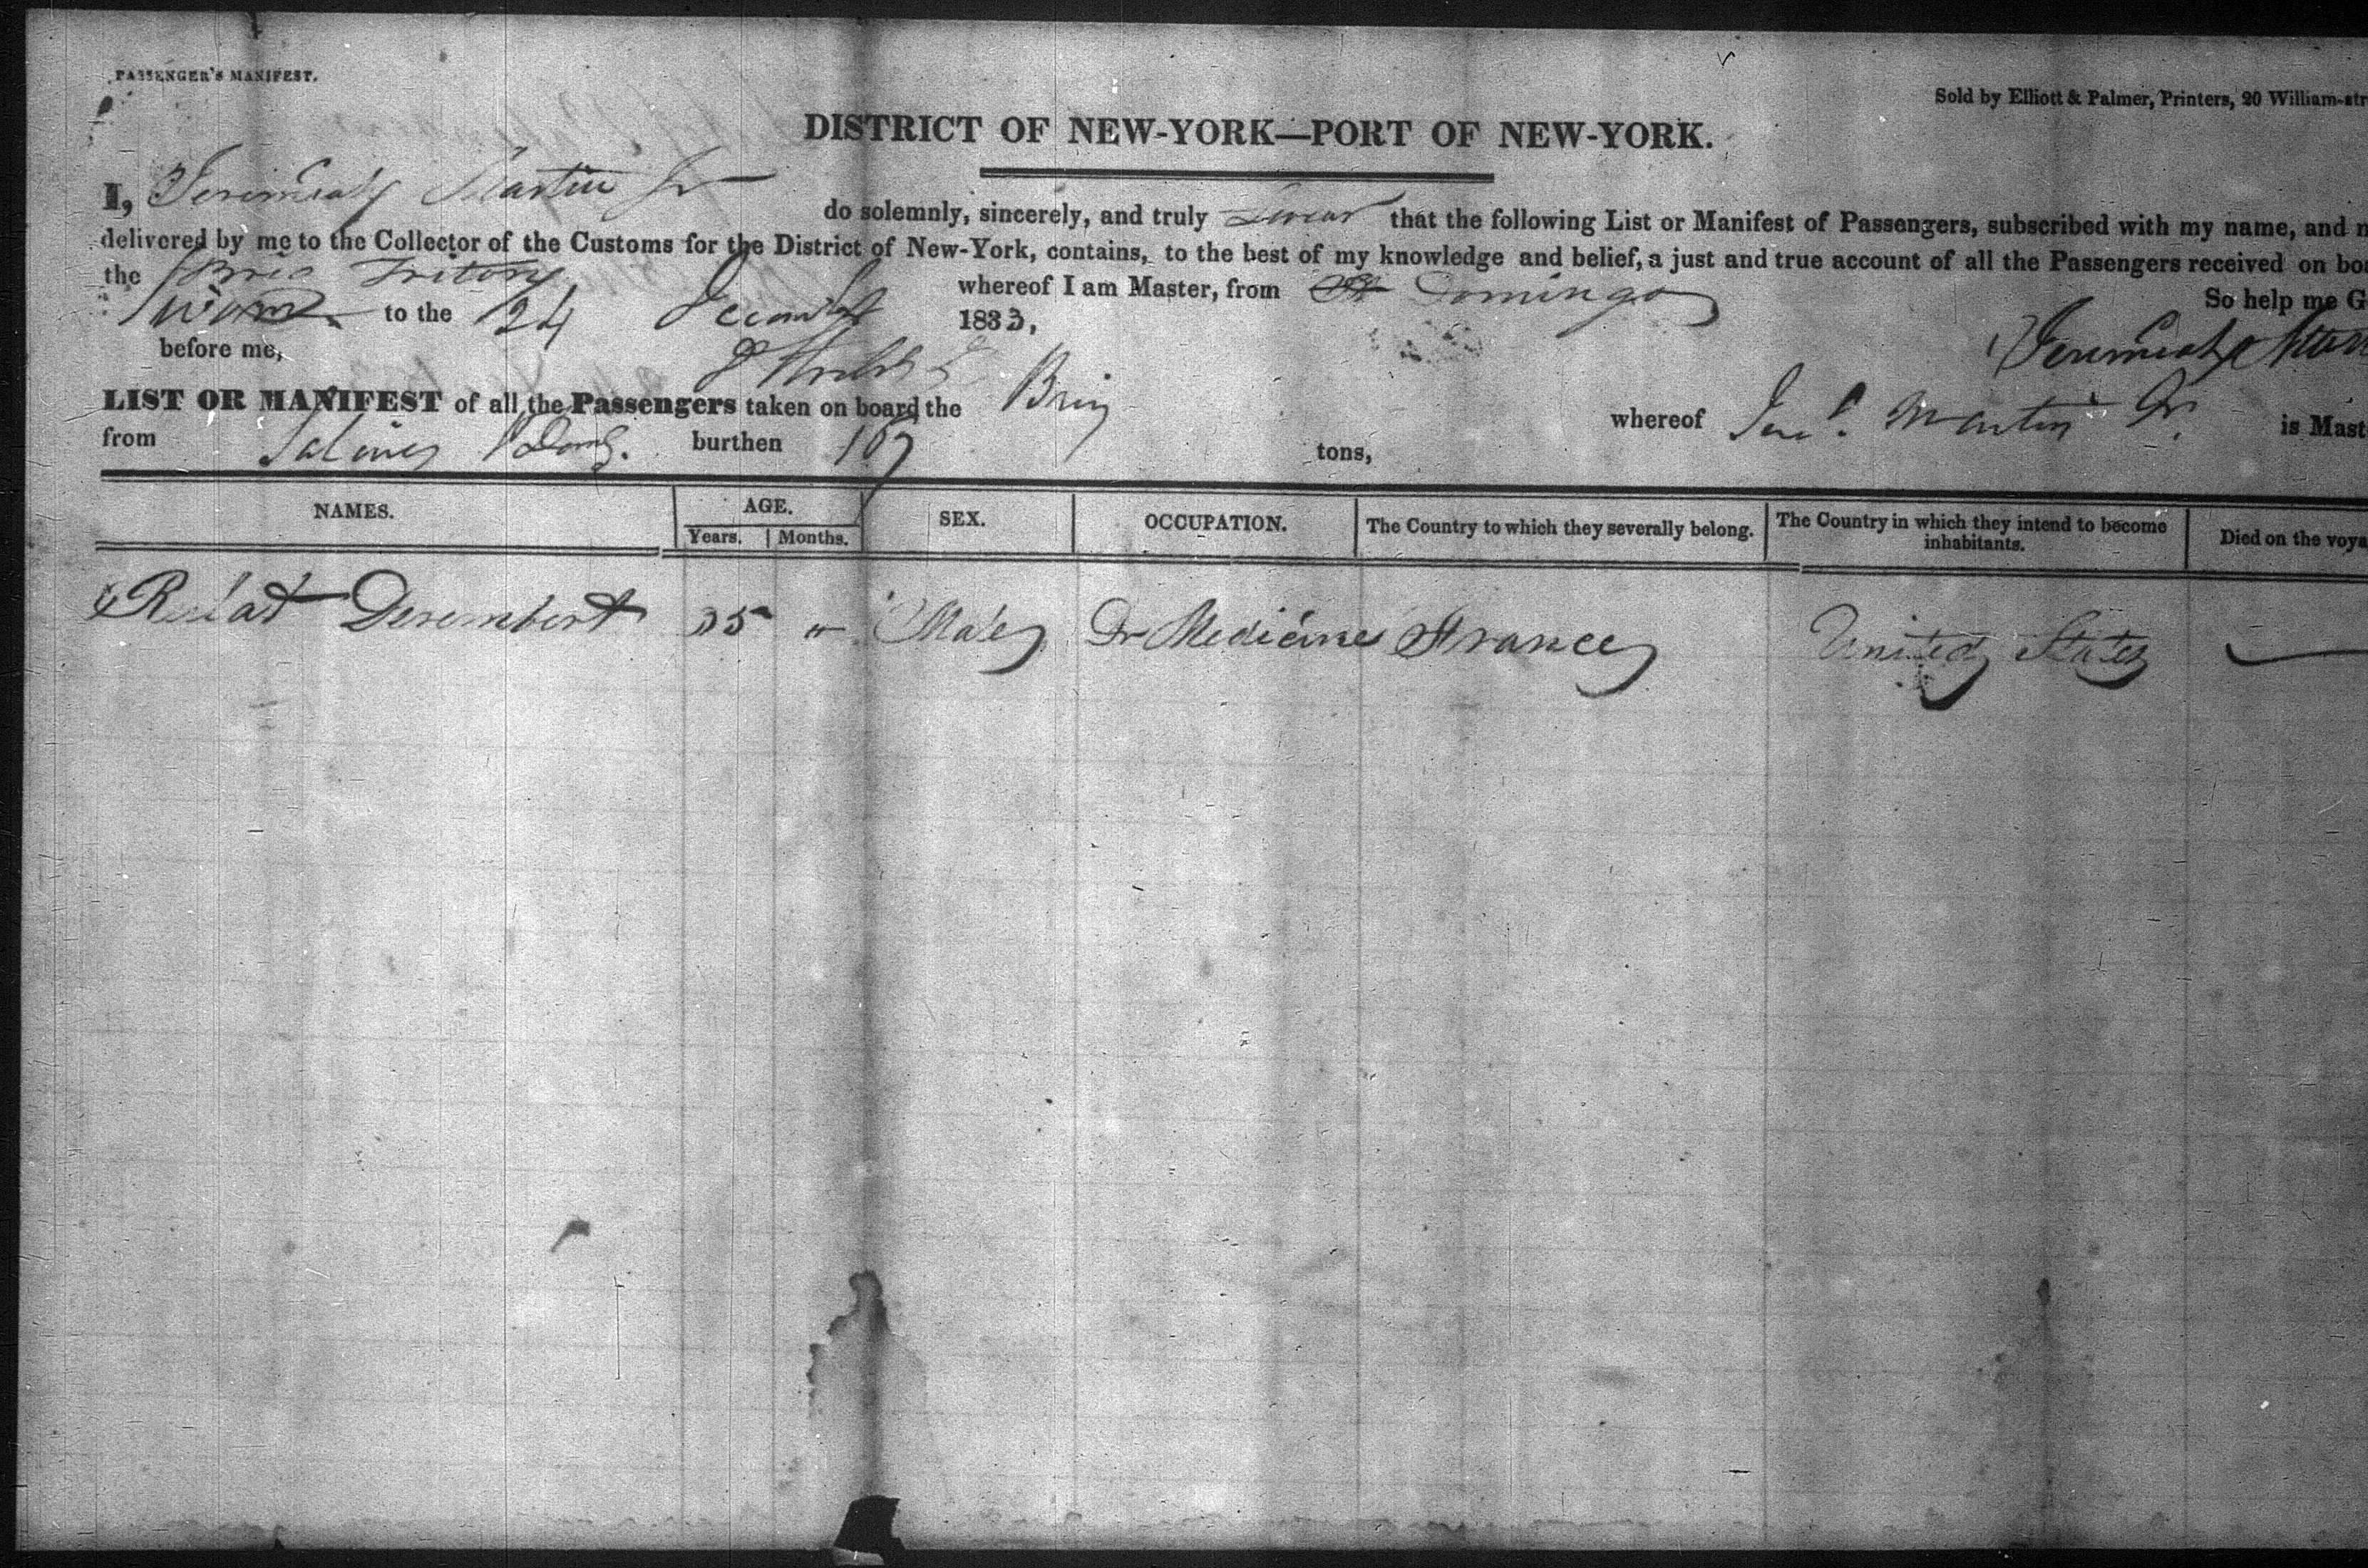 PASSENGER'S MANIFEST.
Sold by Elliott & Palmer, Printers, 20 William-str
DISTRICT OF NEW-YORK—PORT OF NEW-YORK.
I, Jeremiah Martin Jr do solemnly, sincerely, and truly swear that the following List or Manifest of Passengers, subscribed with my name, and n
delivered by me to the Collector of the Customs for the District of New-York, contains, to the best of my knowledge and belief, a just and true account of all the Passengers received on boa
the Brig Triton whereof I am Master, from St Domingo
So help me G
Sworn to the 24 December 1833,
before me,
Jeremiah Mar
LIST OR MANIFEST of all the Passengers taken on board the Brig whereof Jere. Martin Jr. is Mast
from Salines burthen 107 tons,
NAMES. AGE. SEX. OCCUPATION. The Country to which they severally belong. The Country in which they intend to become inhabitants. Died on the voya
Years. Months.
Derembert 35 " Male Dr Medicine France United States